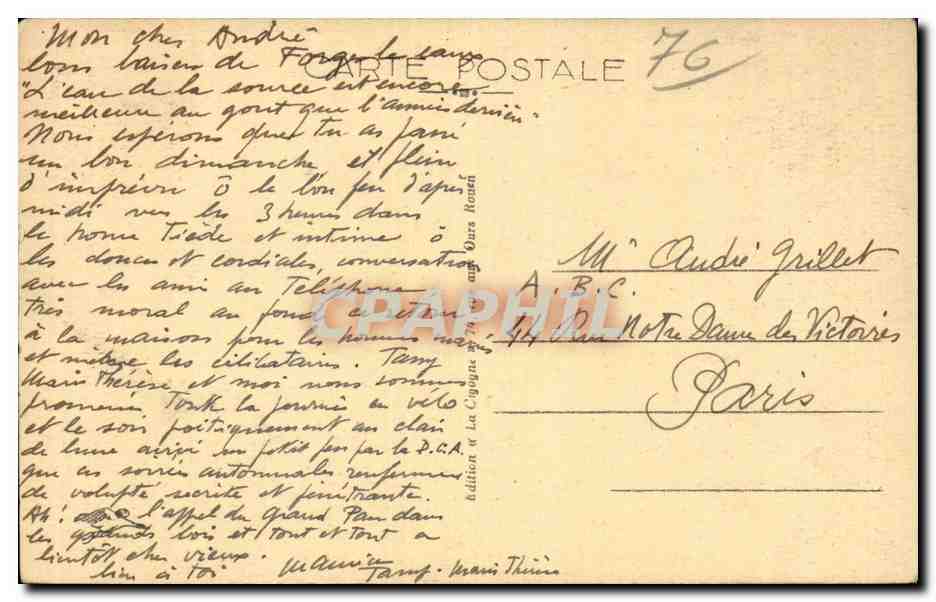 Mon cher André
bons baisers de Forges les eaux
"L'eau de la source est encore
meilleure au gout que l'année dernière"
Nous espérons que tu as passé
un bon dimanche et plein
d'imprévu Ô le bon feu d'après
midi vers les 3 heures dans
le home Tiède et intime ô
les douces et cordiales conversation
avec les amis au Téléphone
très moral au fond
à la maison pour les hommes mariés
et même les célibataires. Tany
Marie Thérèse et moi nous sommes
promenés Toute la journée en vélo
et le soir poétiquement au clair
de lune un petit peu par la D.C.A.
que ces soirées automnales renferment
de volupté secrète et pénétrante.
Ah! l'appel du Grand Pan dans
les grands bois et tout et tout a
bientôt cher vieux.
bien à toi Maurice
Tany - Marie Thérèse
CARTE POSTALE
76
Edition " La Cigogne " aux Ours Rouen
Mr André Grillet
A.B.C.
44 Rue Notre Dame des Victoires
Paris
CPAPHIL